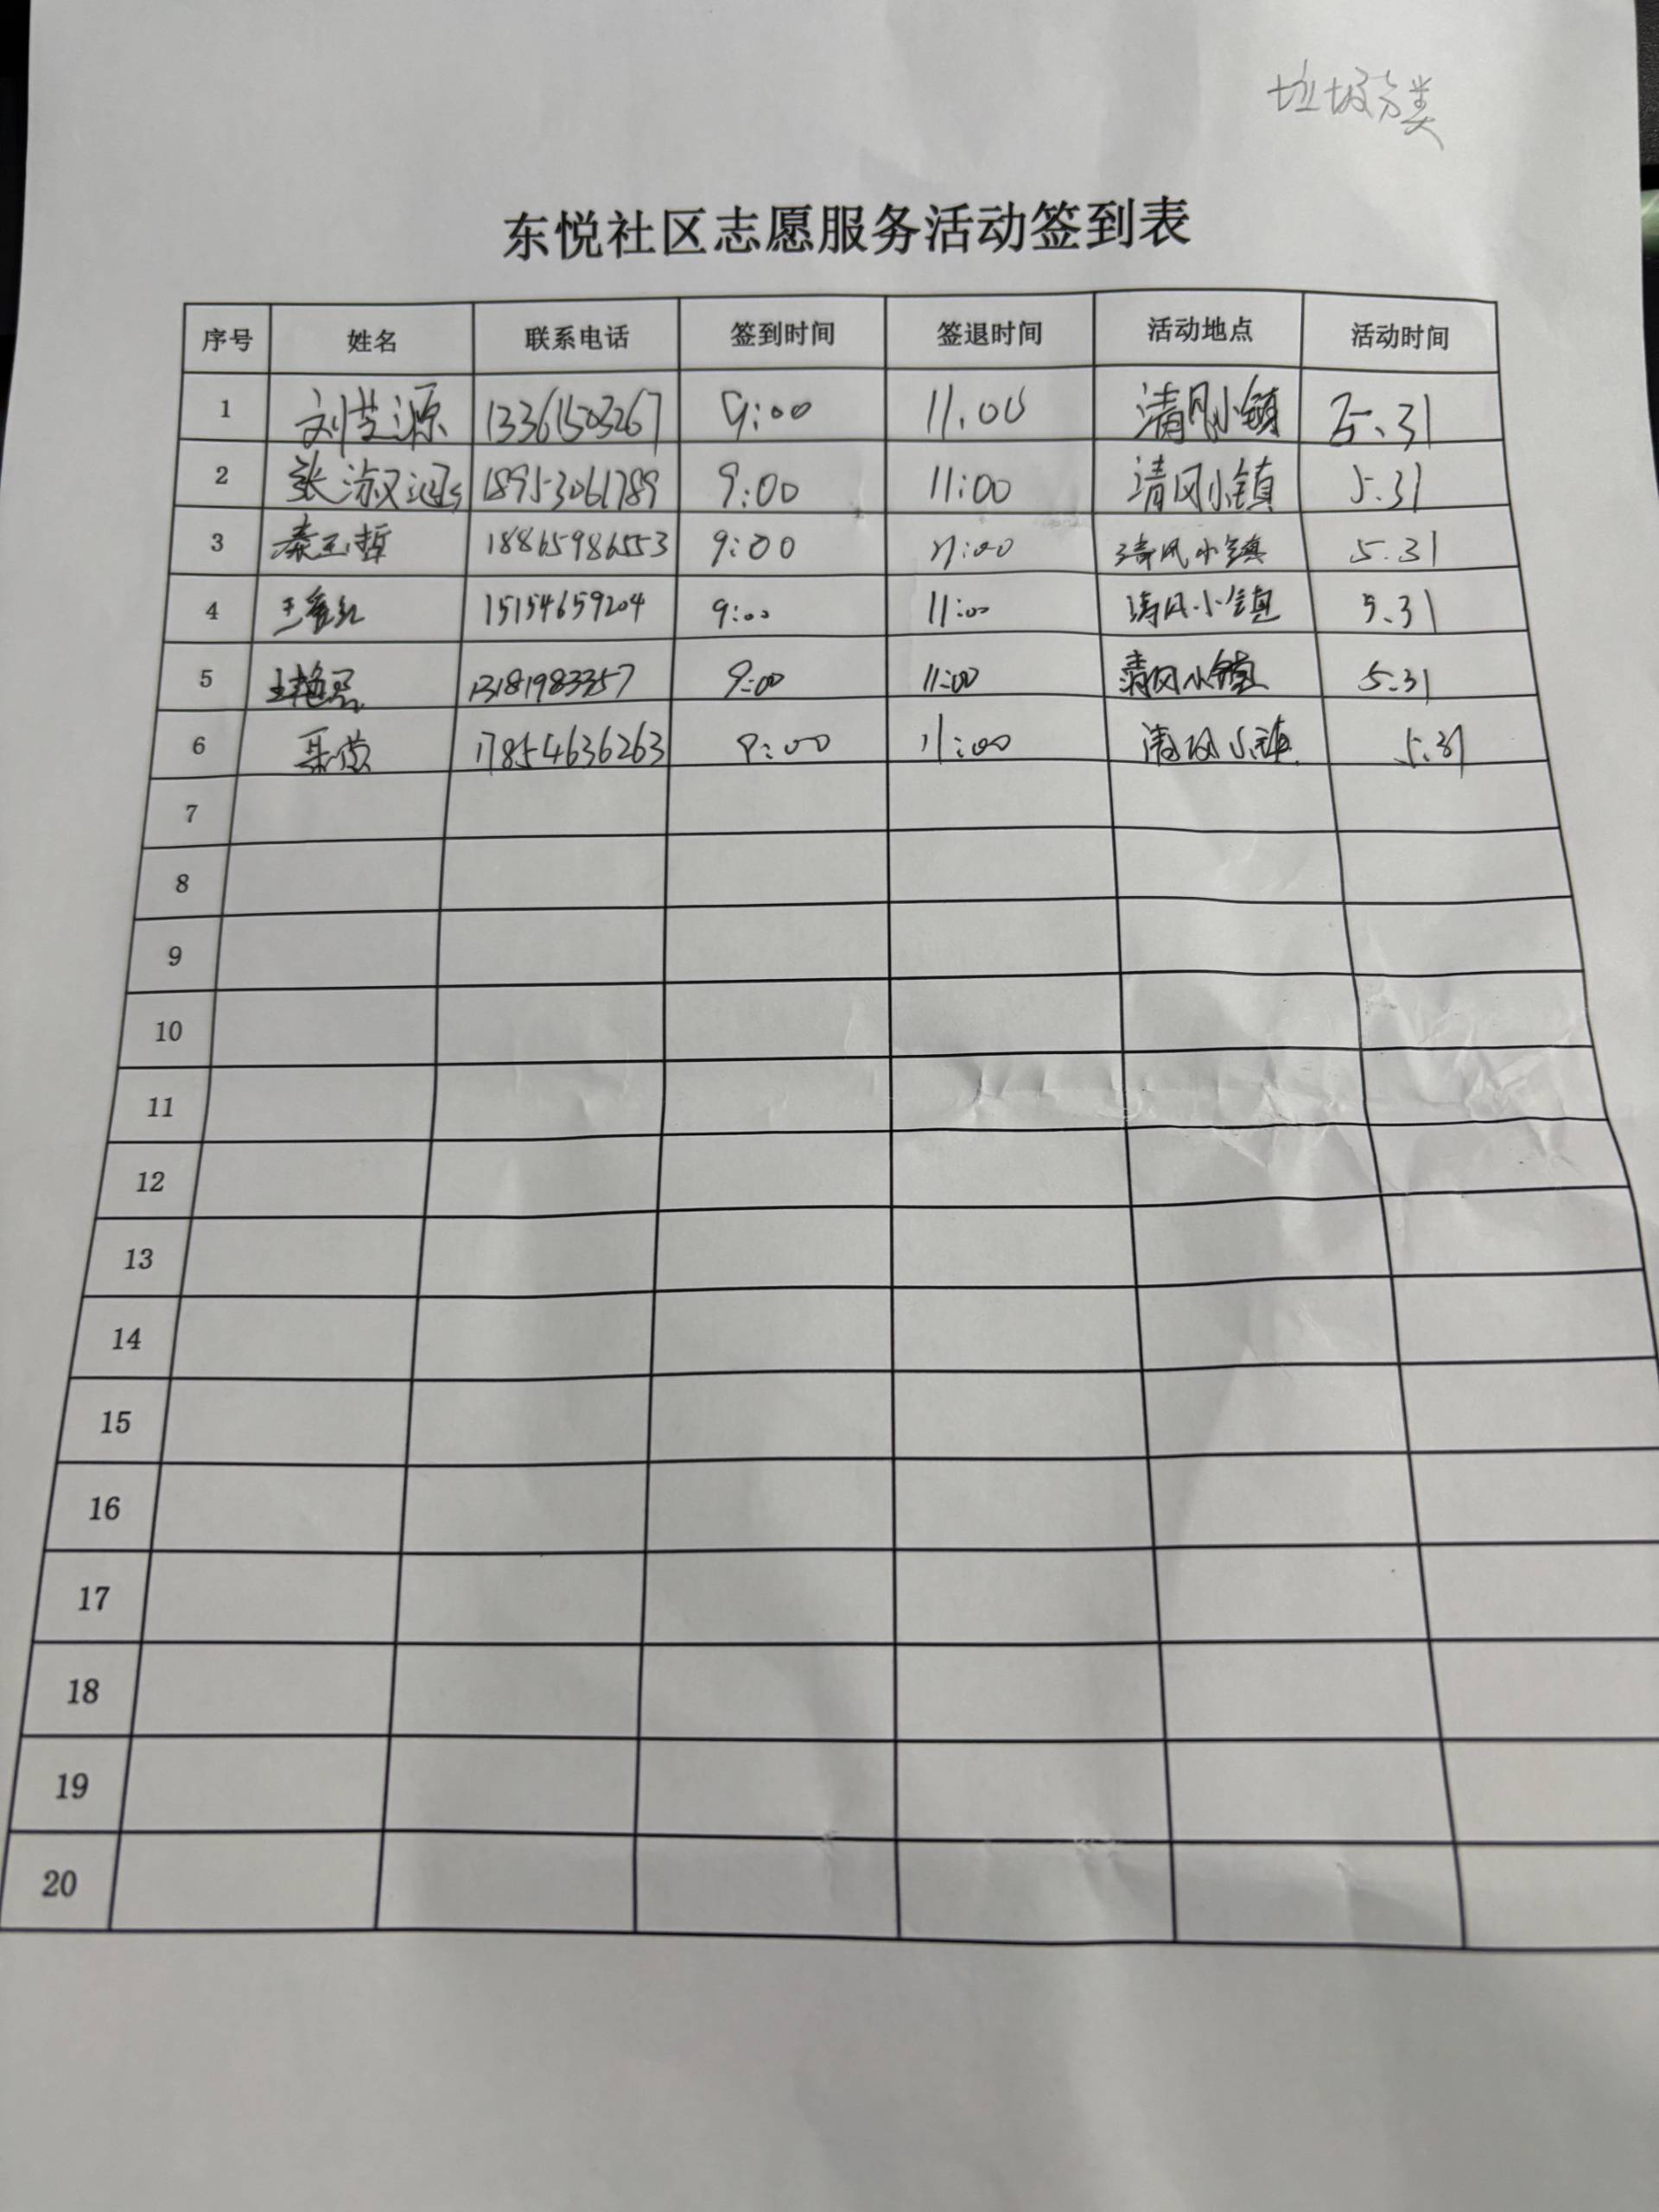 垃圾分类
东悦社区志愿服务活动签到表
序号 姓名 联系电话 签到时间 签退时间 活动地点 活动时间
1 刘芝源 13361503267 9:00 11:00 清风小镇 5.31
2 张淑 18953061789 9:00 11:00 清风小镇 5.31
3 秦玉哲 18865986553 9:00 11:00 清风小镇 5.31
4 王 15154659204 9:00 11:00 清风小镇 5.31
5 王艳 13181983357 9:00 11:00 清风小镇 5.31
6 17854636263 9:00 11:00 清风小镇 5.31
7
8
9
10
11
12
13
14
15
16
17
18
19
20